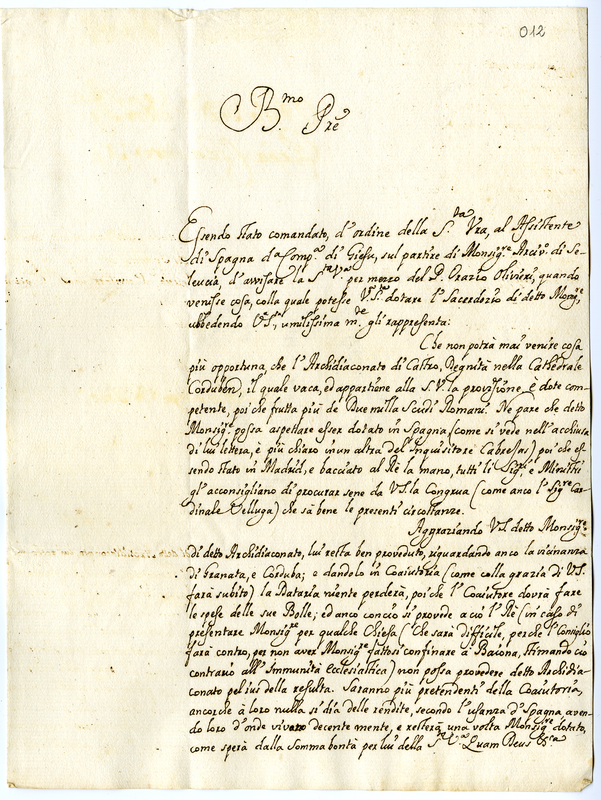 012
B.mo Pre
Essendo stato comandato, d'ordine della S.ta Vra, al Assistente
di Spagna d.a Comp.a di Giesu, sul partire di Monsig.re Arciv. di Se-
leucia, d'avvisare la S.tà V.a per mezzo del P. Orazio Olivieri, quando
venisse cosa, colla quale potesse V.S.tà dotare l'Sacerdozio di detto Mong.re,
ubbedendo V.S., umilissima m.de gli rappresenta:
Che non potrà mai venire cosa
più opportuna, che l'Archidiaconato di Castro, Degnità nella Cathedrale
Corduben, il quale vaca, ed appartiene alla S.V. la provisione, è dote com-
petente, poi che frutta più de Due milla Scudi Romani. Ne pare che detto
Monsig.re possa aspettare esser dotato in Spagna (come si vede nell'acchiusa
di lui lettera, è più chiaro in un altra del Inquisitore Cabresas) poi che es-
sendo stato in Madrid, e bacciato al Rè la mano, tutti li Sig.ri e Ministri
gl'acconsigliano di procurarsene da V.S. la Congrua (come anco l'Sig.re Car-
dinale Velluga) che sà bene le presenti circostanze.
Aggraziando V.S. detto Monsig.re
di detto Archidiaconato, lui resta ben proveduto, riguardando anco la vicinanza
di Granata, e Corduba; e dandolo in Coaiutoria (come colla grazia di V.S.
farà subito) la Dataria niente perderà, poi che l'Coaiutore dovrà fare
le spese delle sue Bolle; ed anco con ciò si provede a ciò l'Rè (in caso di
presentare Monsig.re per qualche Chiesa (che sarà difficile, perche l'Consiglio
farà contro, per non aver Monsig.re fattosi confinare a Baiona, stimando ciò
contrario all'Immunità Ecclesiastica) non possa provedere detto Archidia-
conato pel ius della resulta. Saranno più pretendenti della Coaiutoria,
ancorche à loro nulla si dia delle rendite, secondo l'usanza d'Spagna aven-
do loro d'onde vivere decentemente, e resterà una volta Monsig.re dotato,
come sperà dalla somma bontà per lui della S.tà V.a Quam Deus &ca